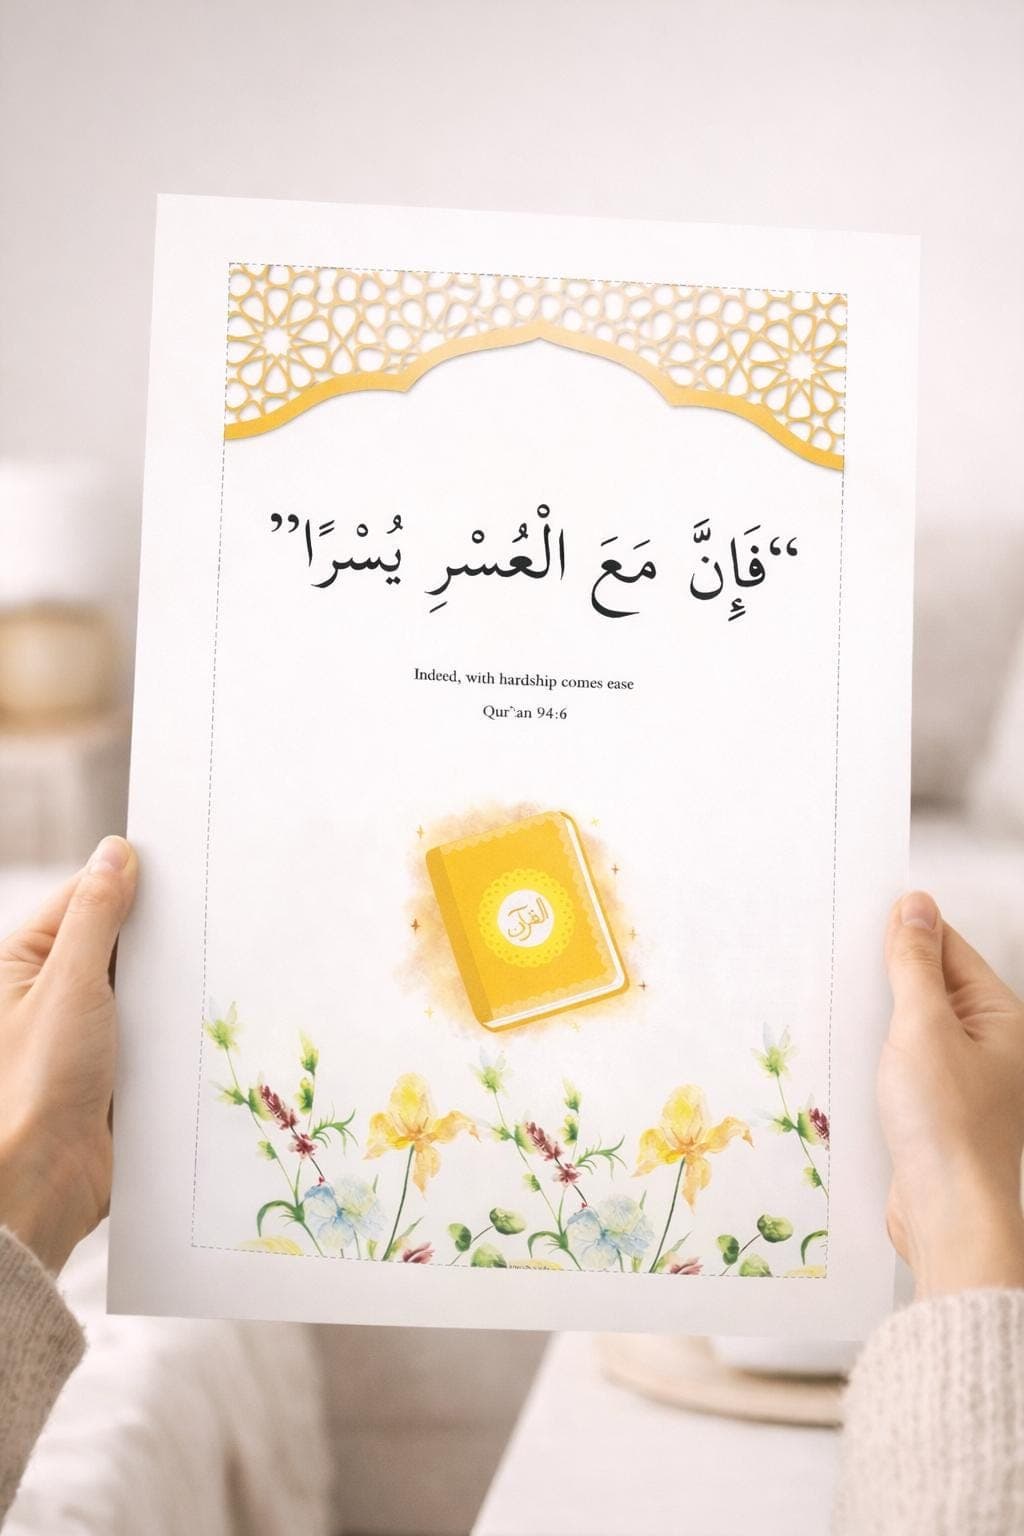 “فَإِنَّ مَعَ الْعُسْرِ يُسْرًا”
Indeed, with hardship comes ease
Qur`an 94:6
القرآن